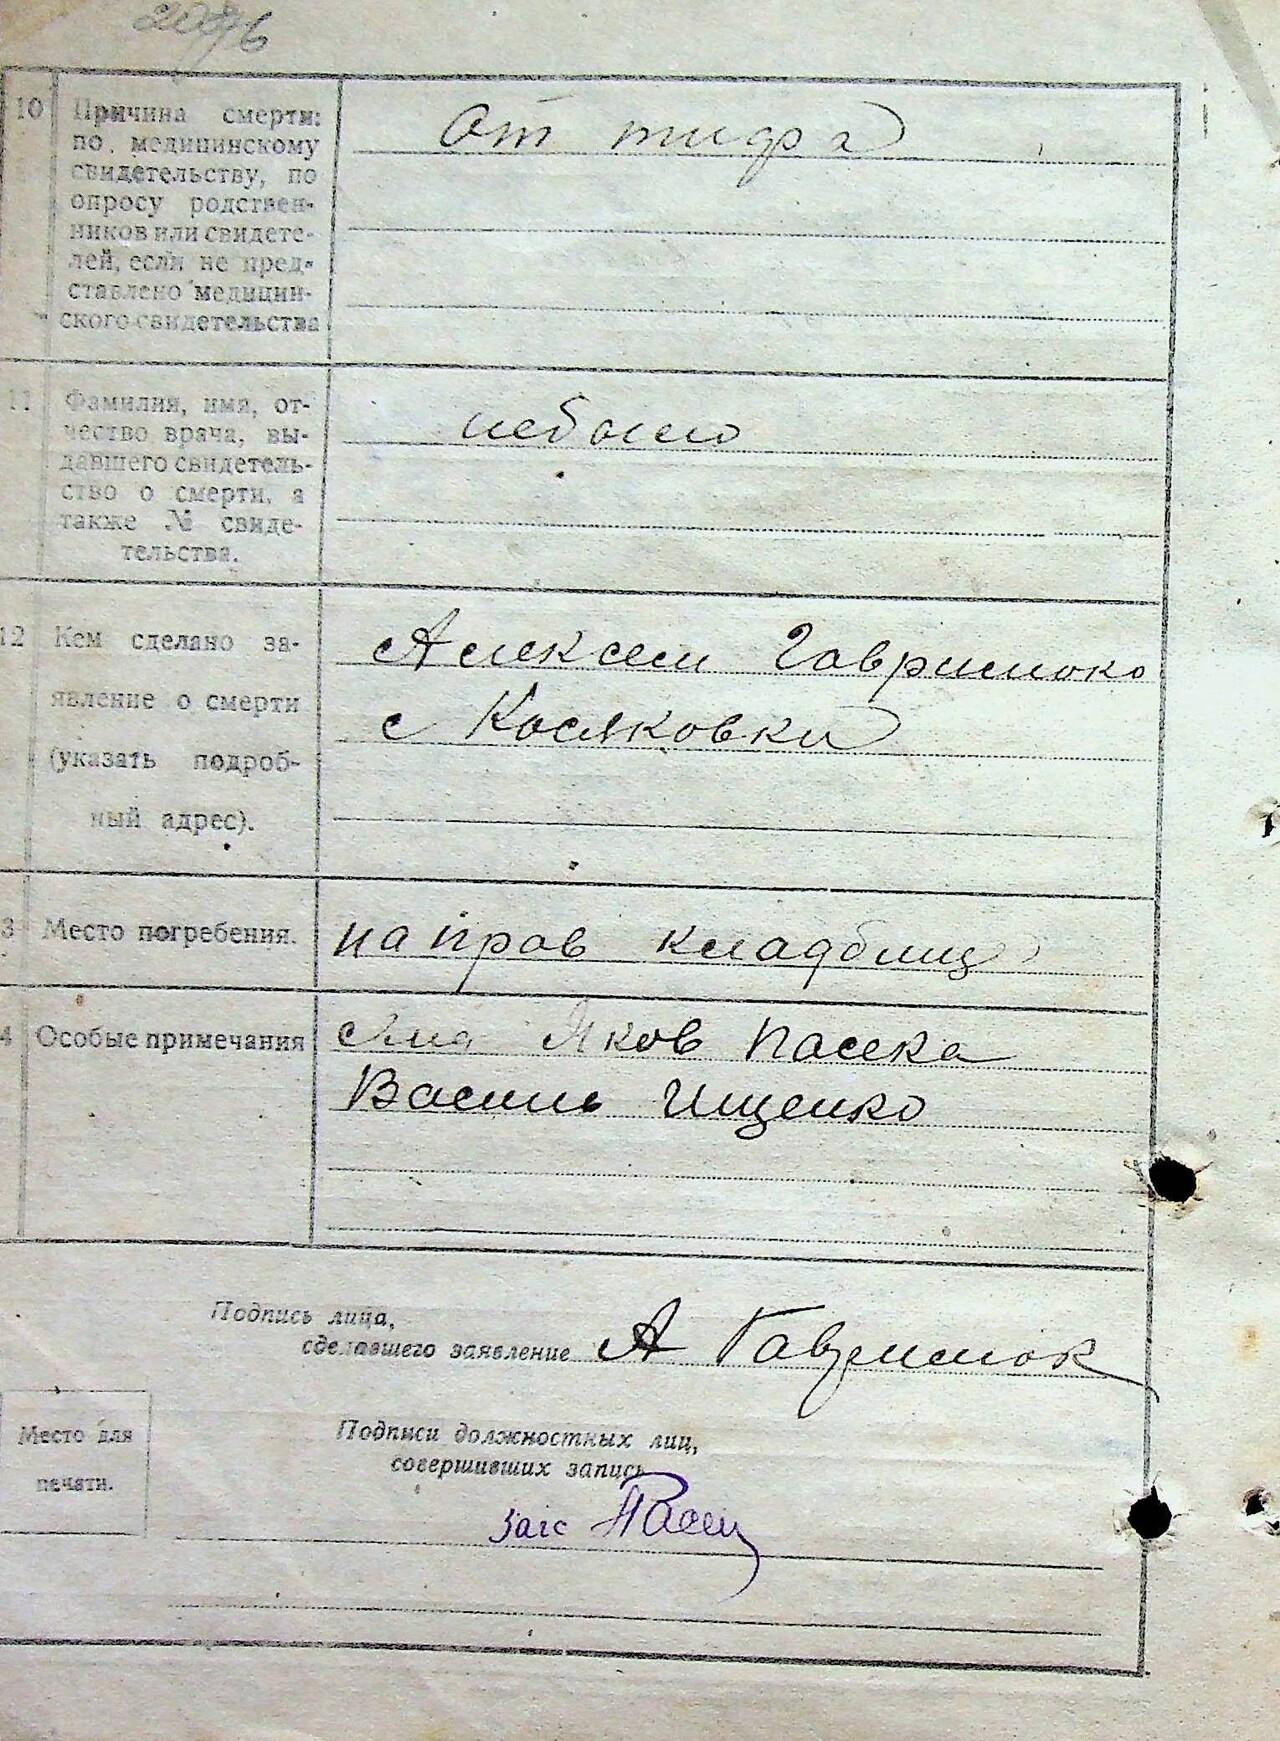 10 Причина смерти:
по медицинскому
свидетельству, по
опросу родствен-
ников или свидете-
лей, если не пред-
ставлено медицин-
ского свидетельства
от тифа
11 Фамилия, имя, от-
чество врача, вы-
давшего свидетель-
ство о смерти, а
также № свиде-
тельства.
небыло
12 Кем сделано за-
явление о смерти
(указать подроб-
ный адрес).
Алексей
с Косяковки
3 Место погребения.
на прав кладбищ
4 Особые примечания
Яков Пасека
Василь Ищенко
Подпись лица,
сделавшего заявление А Гаврилюк
Место для
печати.
Подписи должностных лиц,
совершивших запись
загс